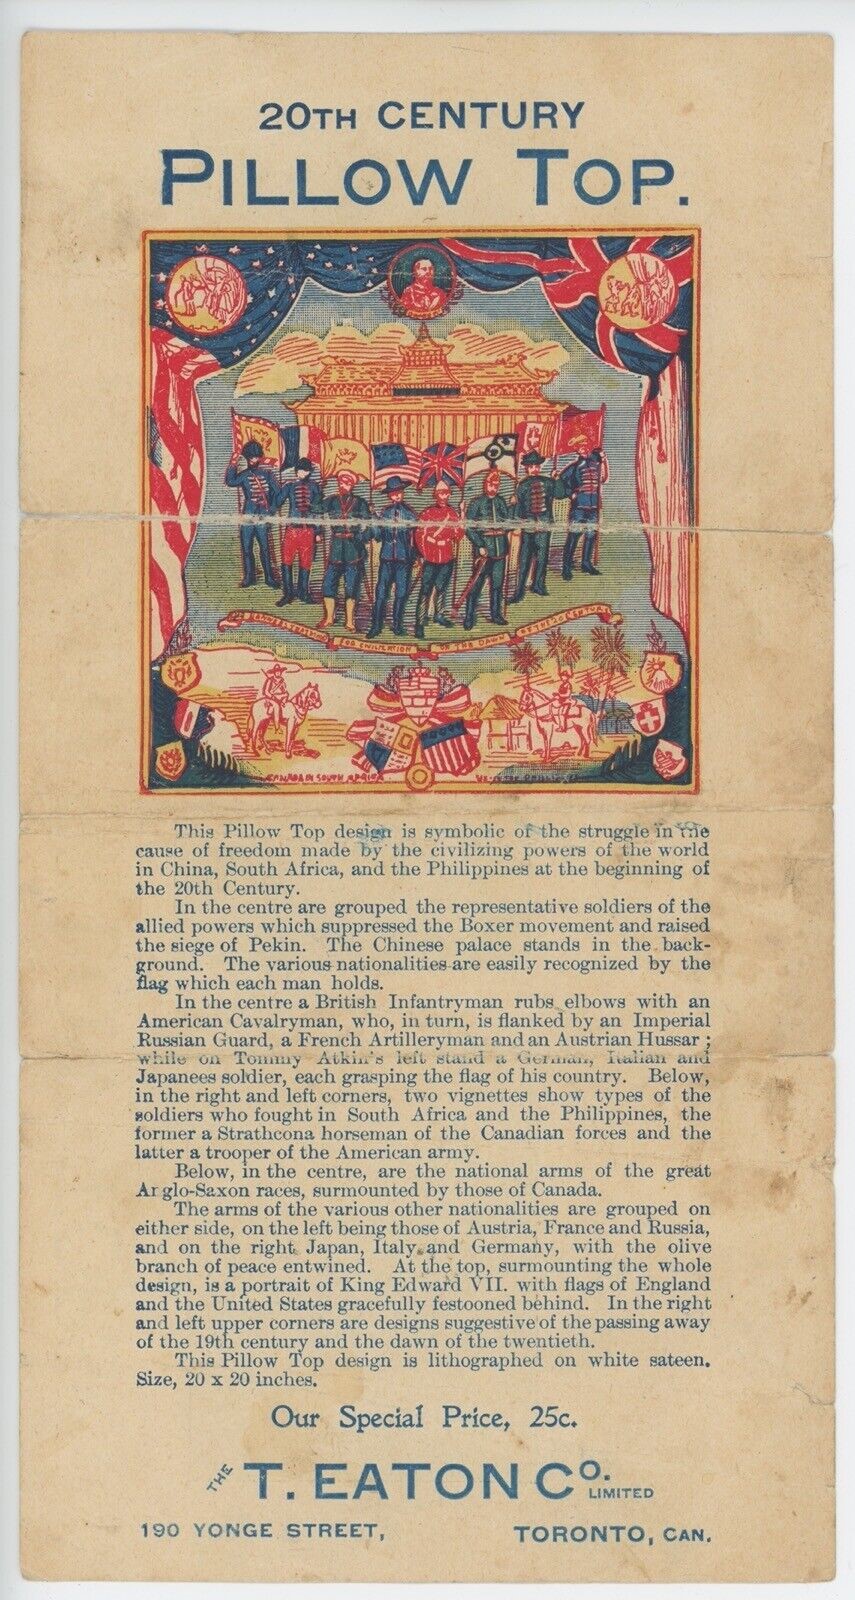 20TH CENTURY
PILLOW TOP.
FOR CIVILIZATION
OF THE DAWN
OF THE 20 CENTURY
CANADA IN SOUTH AFRICA
This Pillow Top design is symbolic of the struggle in the
cause of freedom made by the civilizing powers of the world
in China, South Africa, and the Philippines at the beginning of
the 20th Century.
In the centre are grouped the representative soldiers of the
allied powers which suppressed the Boxer movement and raised
the siege of Pekin. The Chinese palace stands in the back-
ground. The various nationalities are easily recognized by the
flag which each man holds.
In the centre a British Infantryman rubs elbows with an
American Cavalryman, who, in turn, is flanked by an Imperial
Russian Guard, a French Artilleryman and an Austrian Hussar ;
while on Tommy Atkin's left stand a German, Italian and
Japanees soldier, each grasping the flag of his country. Below,
in the right and left corners, two vignettes show types of the
soldiers who fought in South Africa and the Philippines, the
former a Strathcona horseman of the Canadian forces and the
latter a trooper of the American army.
Below, in the centre, are the national arms of the great
Anglo-Saxon races, surmounted by those of Canada.
The arms of the various other nationalities are grouped on
either side, on the left being those of Austria, France and Russia,
and on the right Japan, Italy and Germany, with the olive
branch of peace entwined. At the top, surmounting the whole
design, is a portrait of King Edward VII. with flags of England
and the United States gracefully festooned behind. In the right
and left upper corners are designs suggestive of the passing away
of the 19th century and the dawn of the twentieth.
This Pillow Top design is lithographed on white sateen.
Size, 20 x 20 inches.
Our Special Price, 25c.
THE T. EATON CO. LIMITED
190 YONGE STREET, TORONTO, CAN.